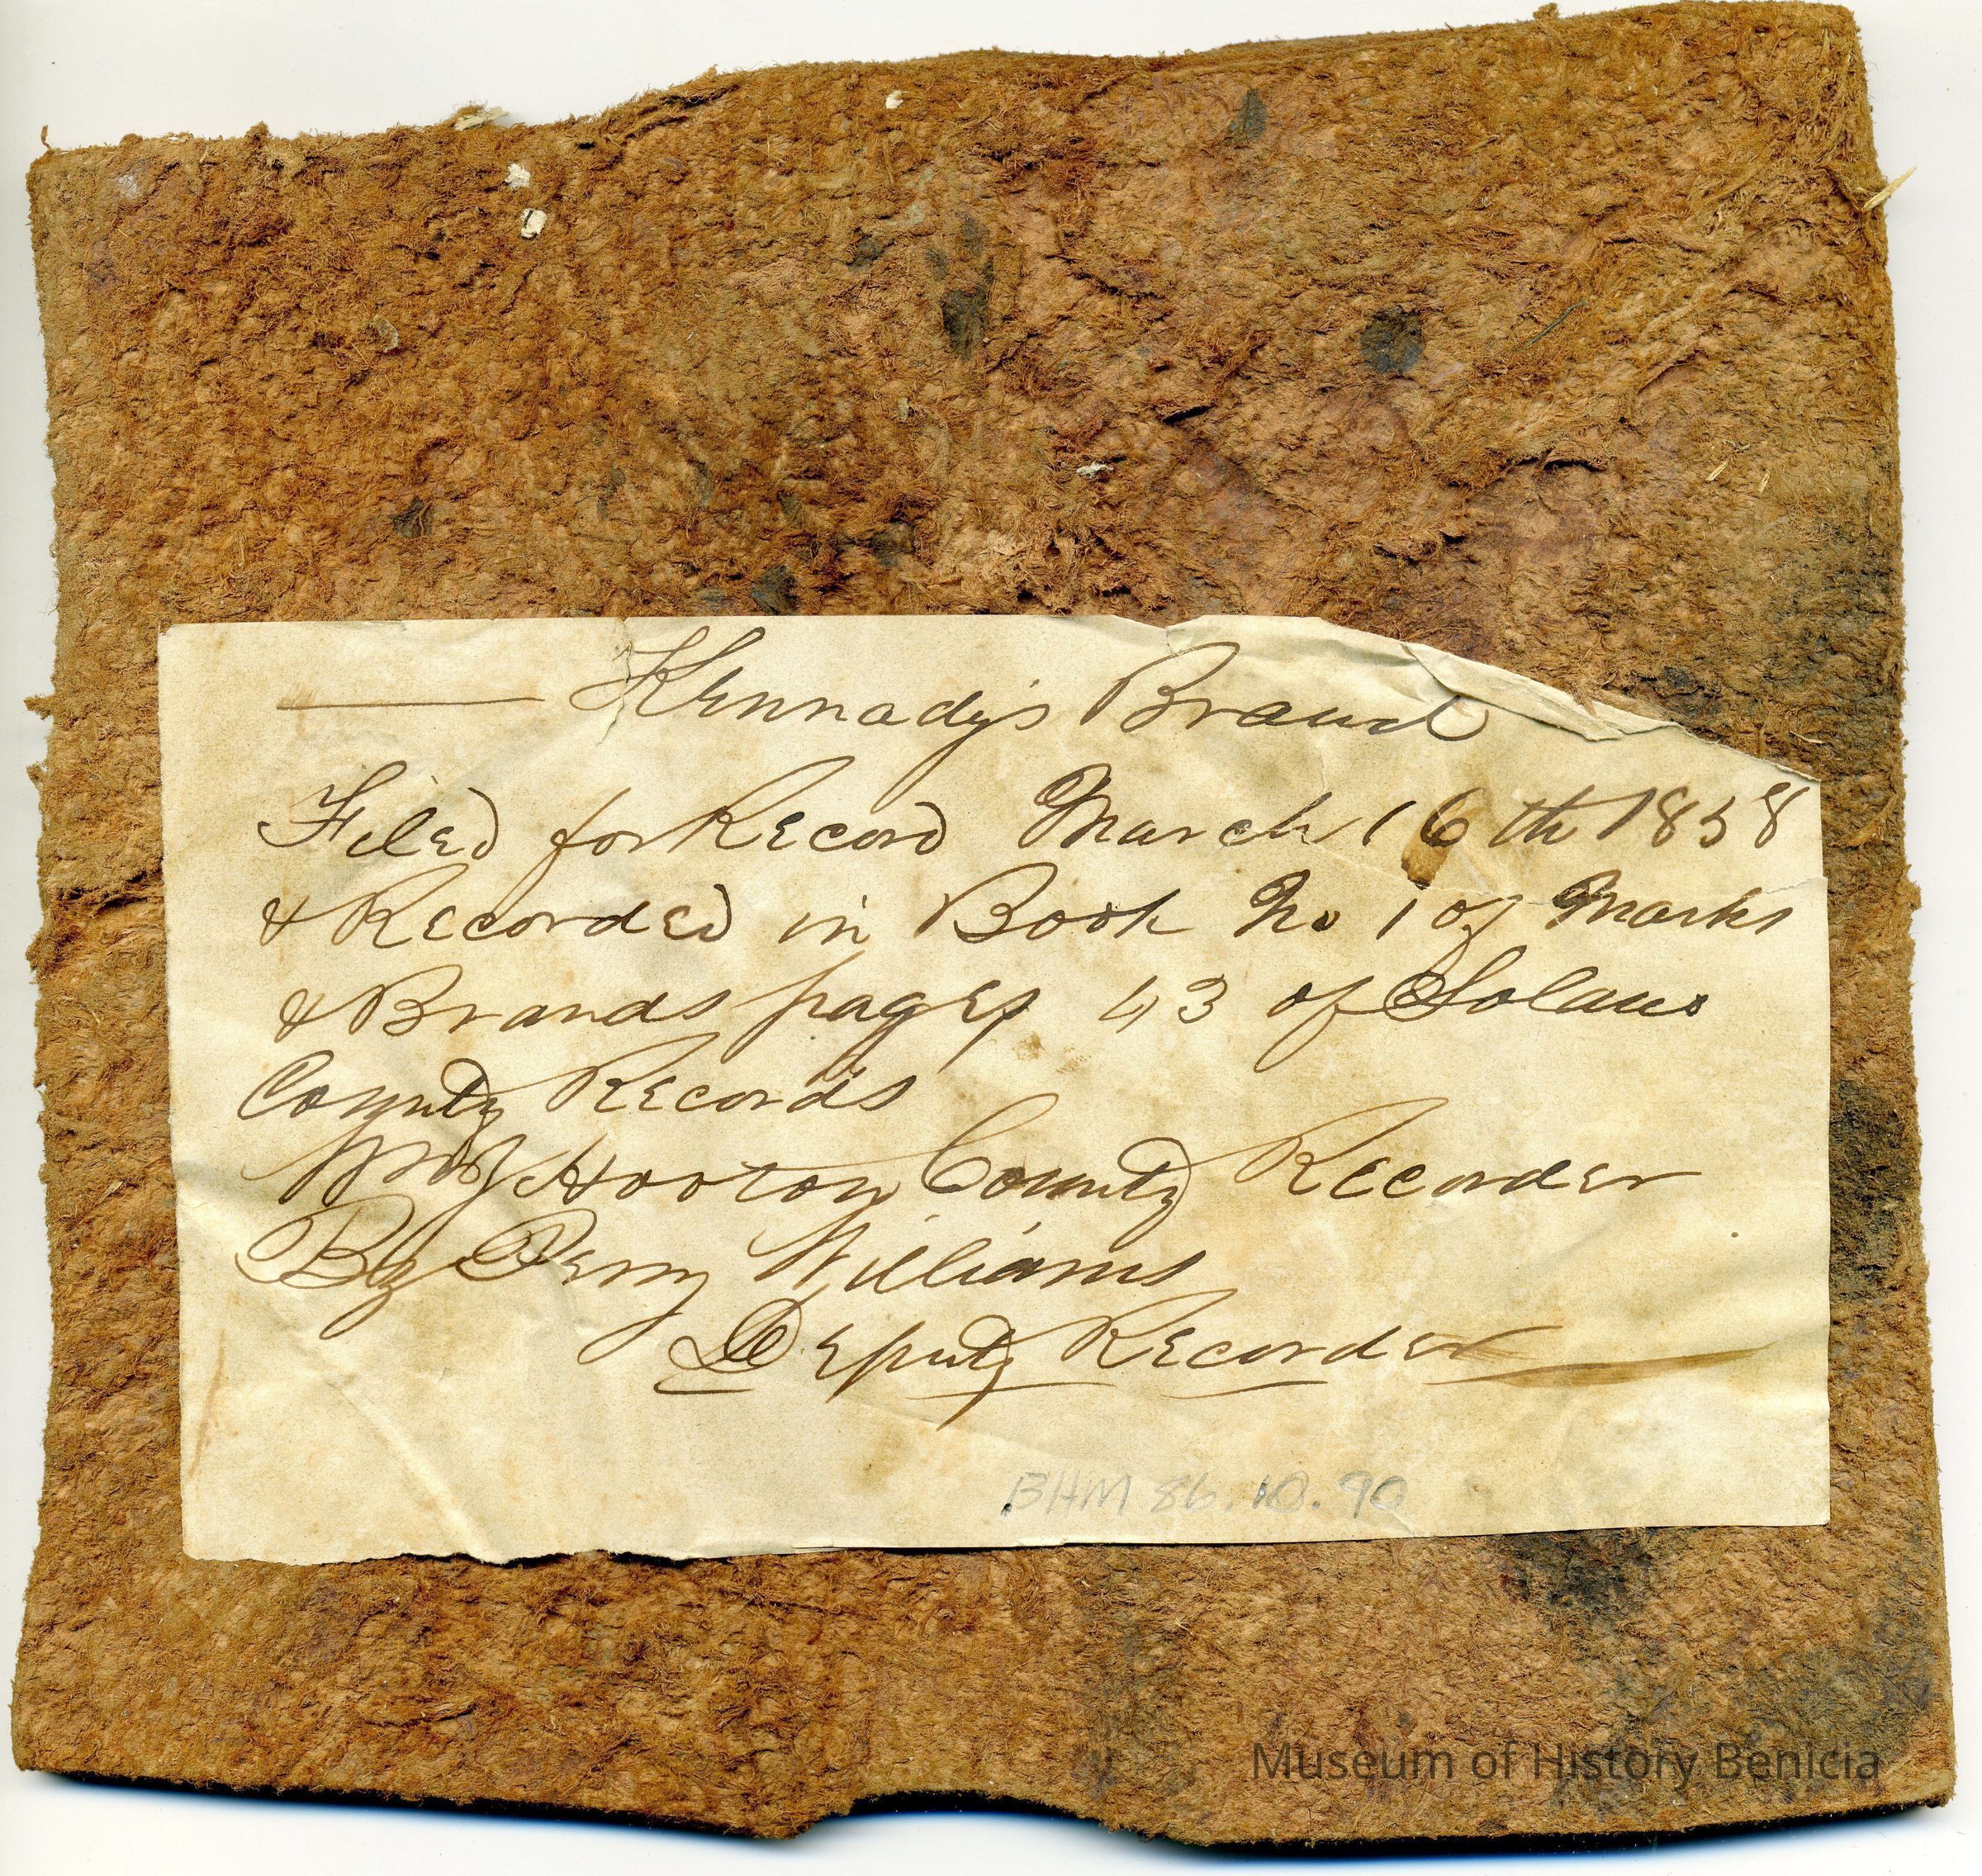 Kennady's Brand
Filed for Record March 16th 1858
& Recorded in Book No 1 of Marks
& Brands pages 43 of Solano
County Records
Hooton County Recorder
By Perry Williams
Deputy Recorder
BHM 86.10.90
Museum of History Benicia